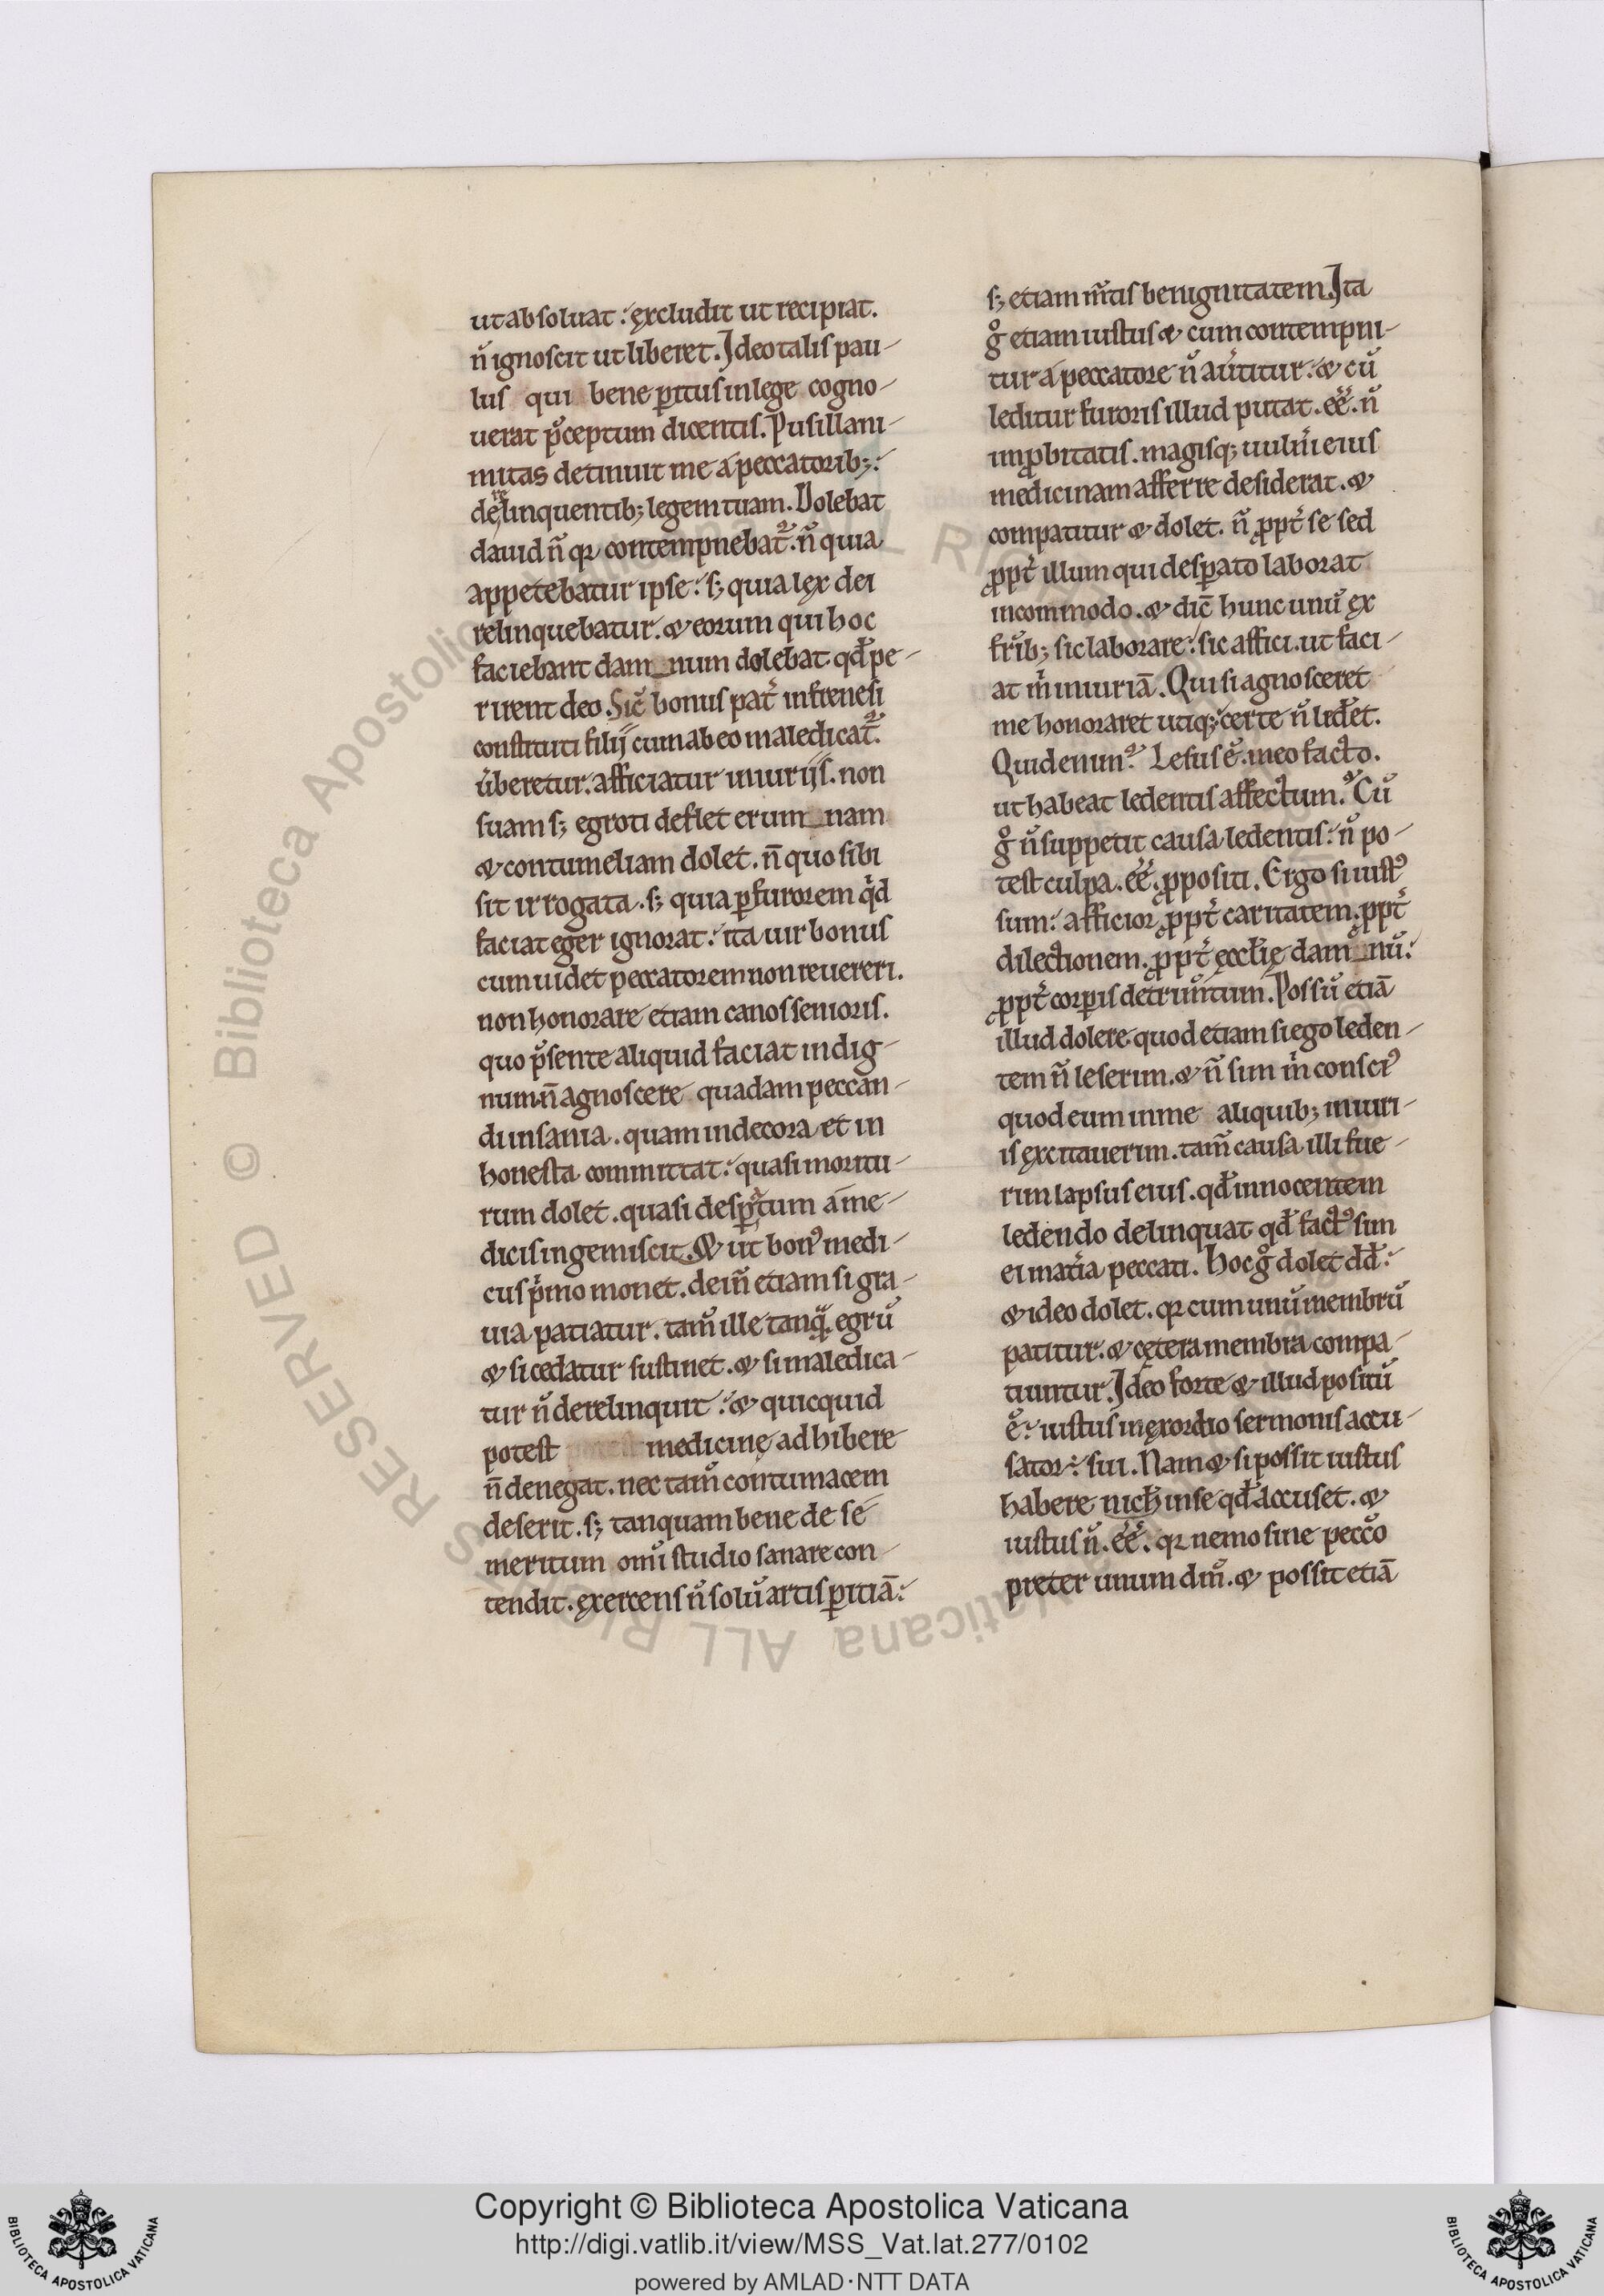 ut absoluat: excludit ut recipiat.
n̄ ignoscit ut liberet. Ideo talis pau-
lus qui bene pitus in lege cogno-
uerat p̄ceptum dicentis. Pusillani-
mitas detinuit me a peccatorib;:
derelinquentib; legem tuam. Dolebat
dauid n̄ qꝛ contempnebat᷑. n̄ quia
appetebatur ipse: s; quia lex dei
relinquebatur. & eorum qui hoc
faciebant dam_num dolebat. qd̄ pe-
rirent deo. Sic̄ bonus pat̄ in frenesi
constituti filij cum ab eo maledicat᷑.
ūberetur. afficiatur iniurijs. non
suam s; egroti deflet erum_nam
& contumeliam dolet. n̄ quo sibi
sit irrogata. s; quia ꝑ furorem qd
faciat eger ignorat: ita uir bonus
cum uidet peccatorem non reuereri.
non honorare etiam canos senioris.
quo p̄sente aliquid faciat indig-
num. n̄ agnoscere quadam peccan-
di insania. quam indecora et in
honesta committat: quasi moritu-
rum dolet. quasi despatum a me-
dicis ingemiscit. & ut bon᷒ medi-
cus pͥmo monet. dein̄ etiam si gra-
uia patiatur. tam̄ ille tanq̄. egrū
& si cedatur sustinet. & si maledica-
tur n̄ derelinquit: & quicquid
potest medicinę adhibere
n̄ denegat. nec tam̄ contumacem
deserit. s; tanquam bene de se
meritum om̄i studio sanare con-
tendit. exercens n̄ solū artis ꝑitiā:
s; etiam m̄tis benignitatem. Ita
gͦ etiam iustus & cum contempni-
tur a peccatore n̄ aūtitur: & cū
leditur furoris illud putat. eē. n̄
inꝓbitatis. magisq; uuln̄i eius
medicinam afferre desiderat. &
compatitur & dolet. n̄ ꝓpt̄ se sed
ꝓpt̄ illum qui despato laborat
incommodo. & dic̄ hunc unū ex
fr̄ib; sic laborare: sic affici. ut faci-
at mͥ iniuriā. Qui si agnosceret
me honoraret utiq;: certe n̄ led̄et.
Quid enim᷑ Lesus ē. meo facto.
ut habeat ledentis affectum᷑ Cū
gͦ n̄ suppetit causa ledentis: n̄ po-
test culpa. eē. ꝓpositi. Ergo si iust᷒
sum: afficior ꝓpt̄ caritatem. ꝓpt̄
dilectionem. ꝓpt̄ eccl̄ie dam_nū:
ꝓpt̄ corꝑis detrim̄tum. Possū etiā
illud dolere. quod etiam si ego leden-
tem n̄ leserim. & n̄ sim mͥ consci᷒
quod eum in me aliquib; iniuri-
is excitauerim. tam̄ causa illi fue-
rim lapsus eius. qd̄ innocentem
ledendo delinquat qd̄ fact᷒ sim
ei mat̄ia peccati. Hoc gͦ dolet dd̄:
& ideo dolet. qꝛ cum unū membrū
patitur. & cętera membra compa-
tiuntur. Ideo forte & illud positū
ē: iustus in exordio sermonis accu-
sator: sui. Nam & si possit iustus
habere nich̄ in se qd̄ accuset. &
iustus n̄. eē. qꝛ nemo sine pecc̄o
preter unum dm̄. & possit etiā
Copyright © Biblioteca Apostolica Vaticana
http://digi.vatlib.it/view/MSS_Vat.lat.277/0102
powered by AMLAD·NTT DATA
BIBLIOTECA APOSTOLICA VATICANA
BIBLIOTECA APOSTOLICA VATICANA